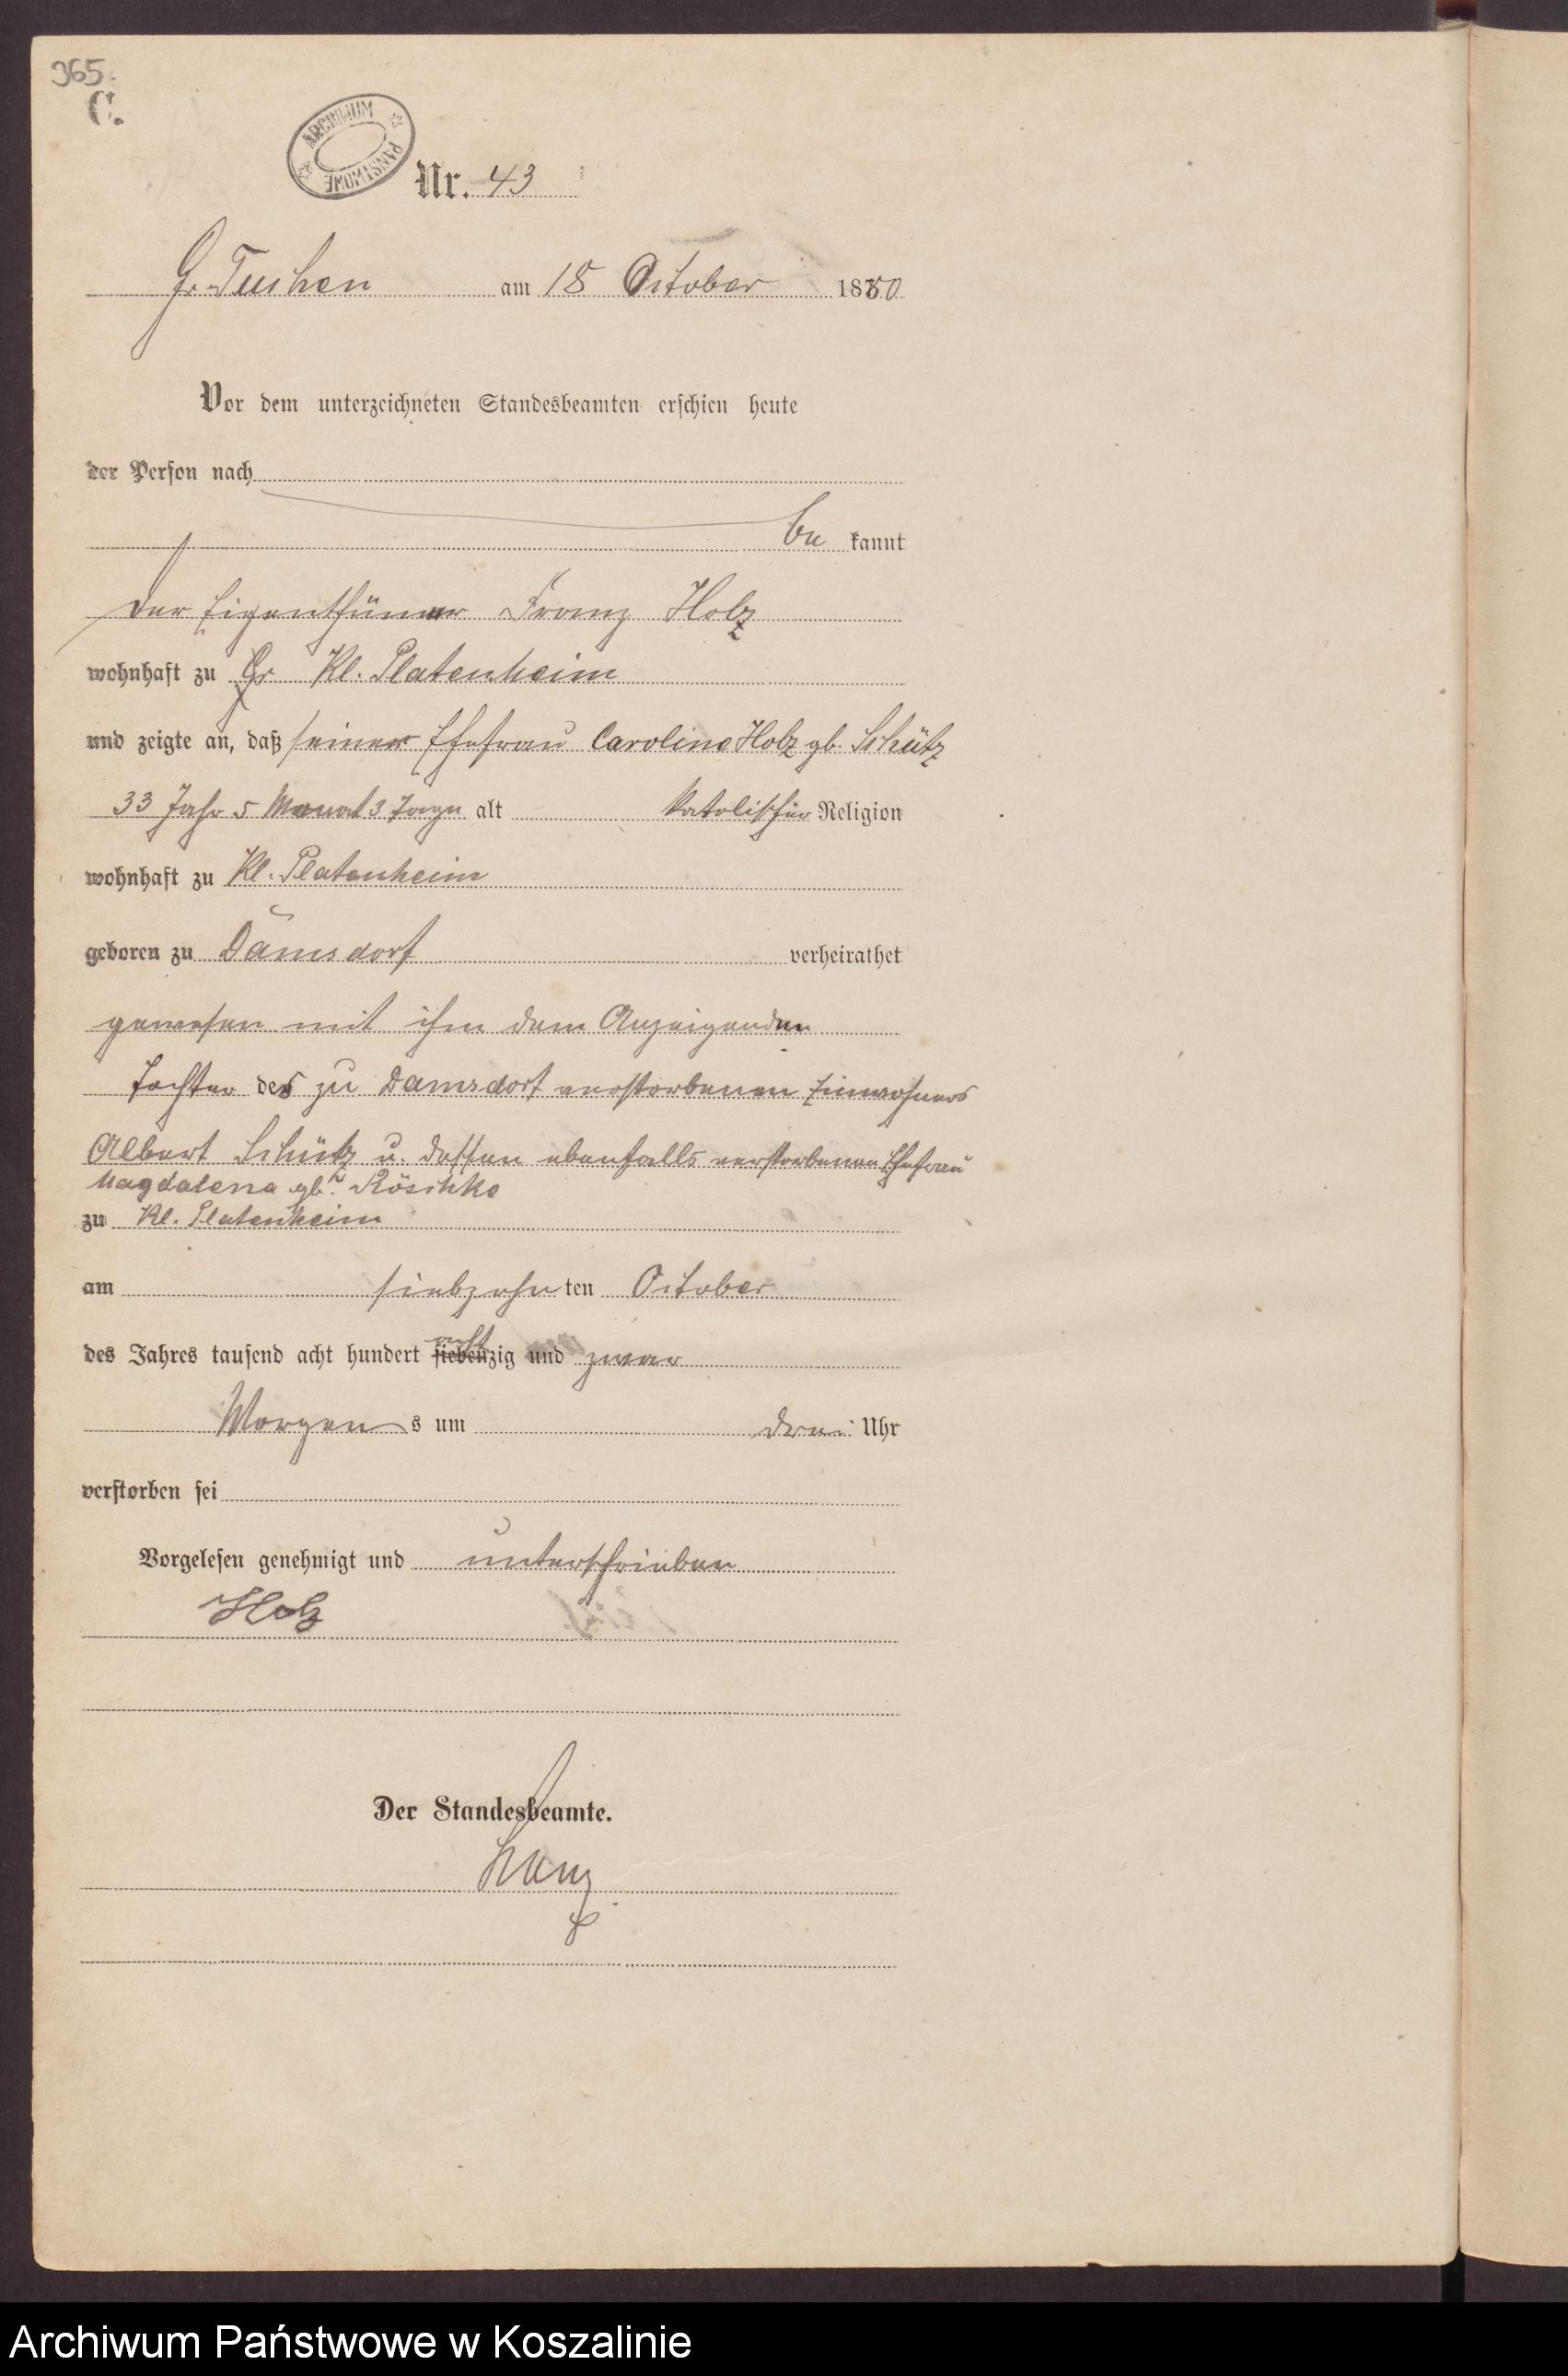 365.
C.
ARCHIWUM PAŃSTWOWE
Nr. 43
Gr. Tuchen am 18 October 1880
Vor dem unterzeichneten Standesbeamten erschien heute
der Person nach
be kannt
der Eigenthümer Franz Holz
wohnhaft zu Gr Kl. Platenheim
und zeigte an, daß seiner Ehefrau Caroline Holz gb. Schütz
33 Jahr 5 Monat 3 Tage alt katolischer Religion
wohnhaft zu Kl. Platenheim
geboren zu Damsdorf verheirathet
gewesen mit ihm dem Anzeigenden
Tochter des zu Damsdorf verstorbenen Einwohners
Albert Schütz u. dessen ebenfalls verstorbenen Ehefrau
Magdalena gb. Röschke
zu Kl. Platenheim
am siebzehn ten October
des Jahres tausend acht hundert siebenzig acht und zwar
Morgen s um drei Uhr
verstorben sei
Vorgelesen genehmigt und unterschrieben
Holz
Der Standesbeamte.
Archiwum Państwowe w Koszalinie